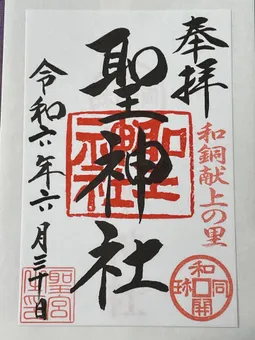 奉拝
和銅献上の里
聖神社
令和六年六月三十日
和同開珎